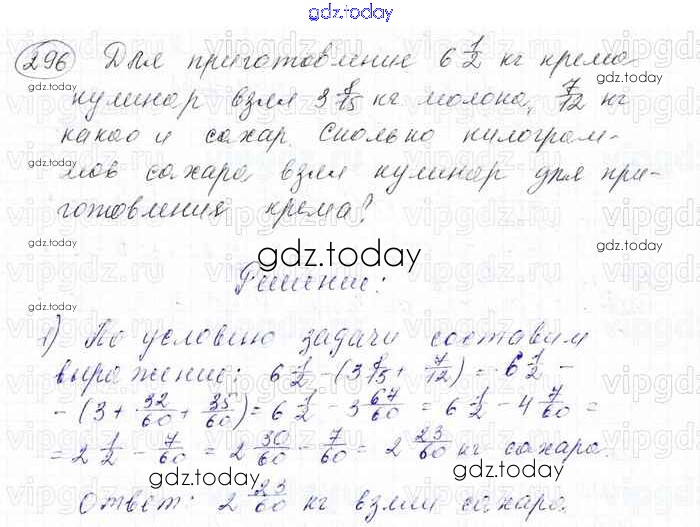 gdz.today
296 Для приготовление 6 1/2 кг крема
кулинар взял 3 8/15 кг молока, 7/12 кг
какао и сахар. Сколько килограм-
мов сахара взял кулинар для при-
готовления крема?
gdz.today
Решение:
1) По условию задачи составим
выражение: 6 1/2 - (3 8/15 + 7/12) = 6 1/2 -
- (3 + 32/60 + 35/60) = 6 1/2 - 3 67/60 = 6 1/2 - 4 7/60 =
= 2 1/2 - 7/60 = 2 30/60 - 7/60 = 2 23/60 кг сахара.
gdz.today
Ответ: 2 23/60 кг взяли сахара.